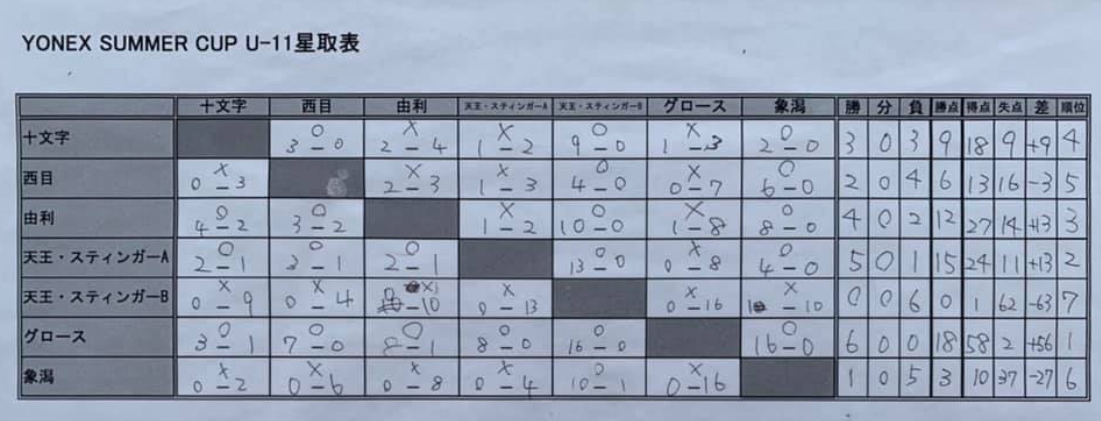 YONEX SUMMER CUP U-11星取表
十文字 西目 由利 天王・スティンガーA 天王・スティンガーB グロース 象潟 勝 分 負 勝点 得点 失点 差 順位
十文字 ○ 3-0 × 2-4 × 1-2 ○ 9-0 × 1-3 ○ 2-0 3 0 3 9 18 9 +9 4
西目 × 0-3 × 2-3 × 1-3 ○ 4-0 × 0-7 ○ 6-0 2 0 4 6 13 16 -3 5
由利 ○ 4-2 ○ 3-2 × 1-2 ○ 10-0 × 1-8 ○ 8-0 4 0 2 12 27 14 +13 3
天王・スティンガーA ○ 2-1 ○ 3-1 ○ 2-1 ○ 13-0 × 0-8 ○ 4-0 5 0 1 15 24 11 +13 2
天王・スティンガーB × 0-9 × 0-4 × 0-10 × 0-13 × 0-16 × 1-10 0 0 6 0 1 62 -63 7
グロース ○ 3-1 ○ 7-0 ○ 8-1 ○ 8-0 ○ 16-0 ○ 16-0 6 0 0 18 58 2 +56 1
象潟 × 0-2 × 0-6 × 0-8 × 0-4 ○ 10-1 × 0-16 1 0 5 3 10 37 -27 6